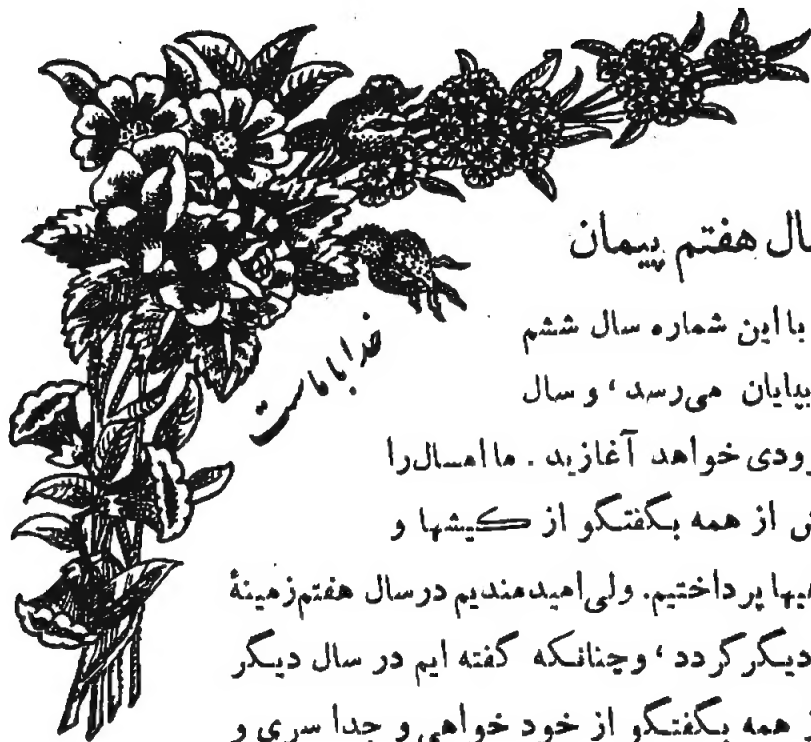 هفتم پیمان
با این شماره سال ششم
بپایان می‌رسد، و سال
خواهد آغازید. ما امسال را
از همه بگفتگو از کیشها و
پرداختیم. ولی امیدمندیم در سال هفتم زمینهٔ
دیگر گردد، و چنانکه گفته ایم در سال دیگر
همه بگفتگو از خود خواهی و جدا سری و
خدا با ماست